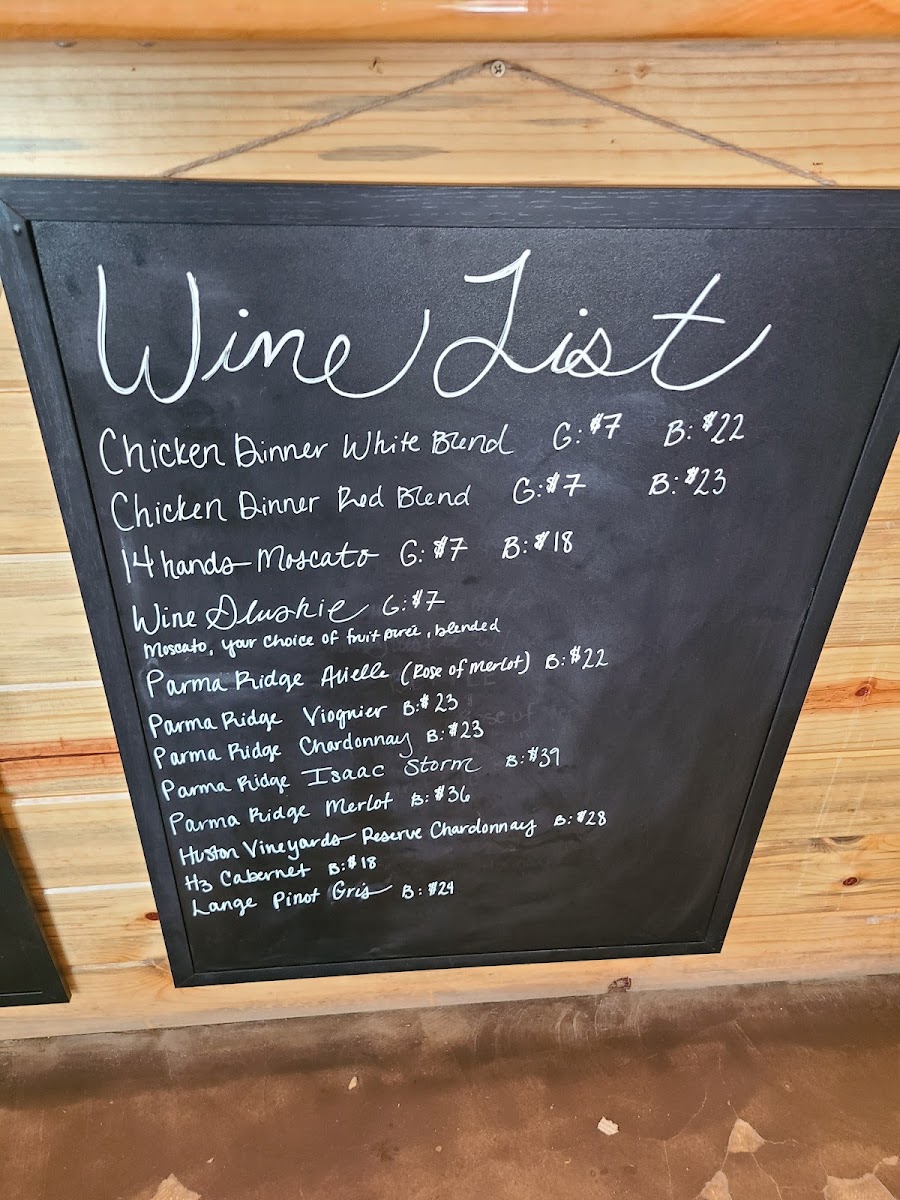 Wine List
Chicken Dinner White Blend G: $7 B: $22
Chicken Dinner Red Blend G: $7 B: $23
14 hands Moscato G: $7 B: $18
Wine Slushie G: $7
Moscato, your choice of fruit pureé, blended
Parma Ridge Arielle (Rose of Merlot) B: $22
Parma Ridge Viognier B: $23
Parma Ridge Chardonnay B: $23
Parma Ridge Isaac Storm B: $39
Parma Ridge Merlot B: $36
Huston Vineyards Reserve Chardonnay B: $28
H3 Cabernet B: $18
Lange Pinot Gris B: $24